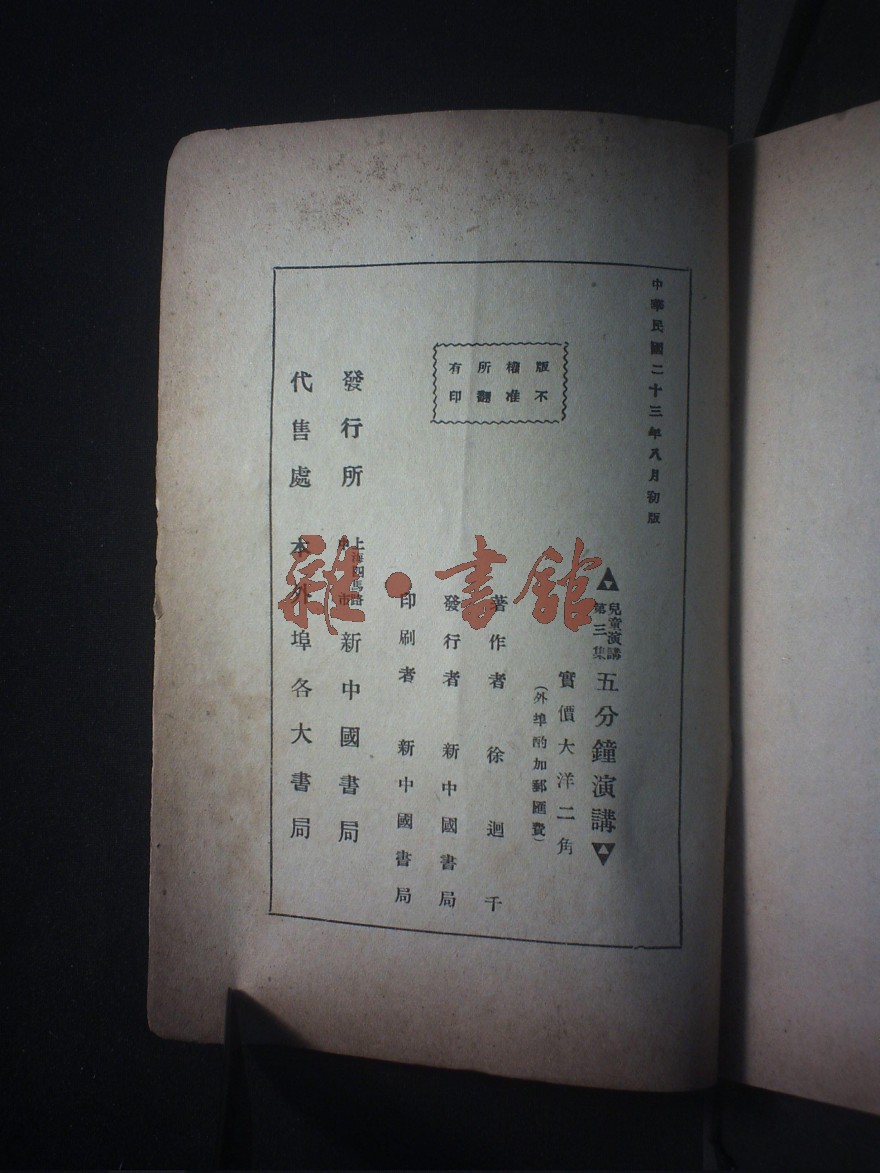 中華民國二十三年八月初版
兒童演講
第三集
五分鐘演講
實價大洋二角
（外埠酌加郵匯費）
版權所有
不准翻印
著作者 徐迥千
發行者 新中國書局
印刷者 新中國書局
發行所
上海四馬路
中市
新中國書局
代售處 本外埠各大書局
雜·書館